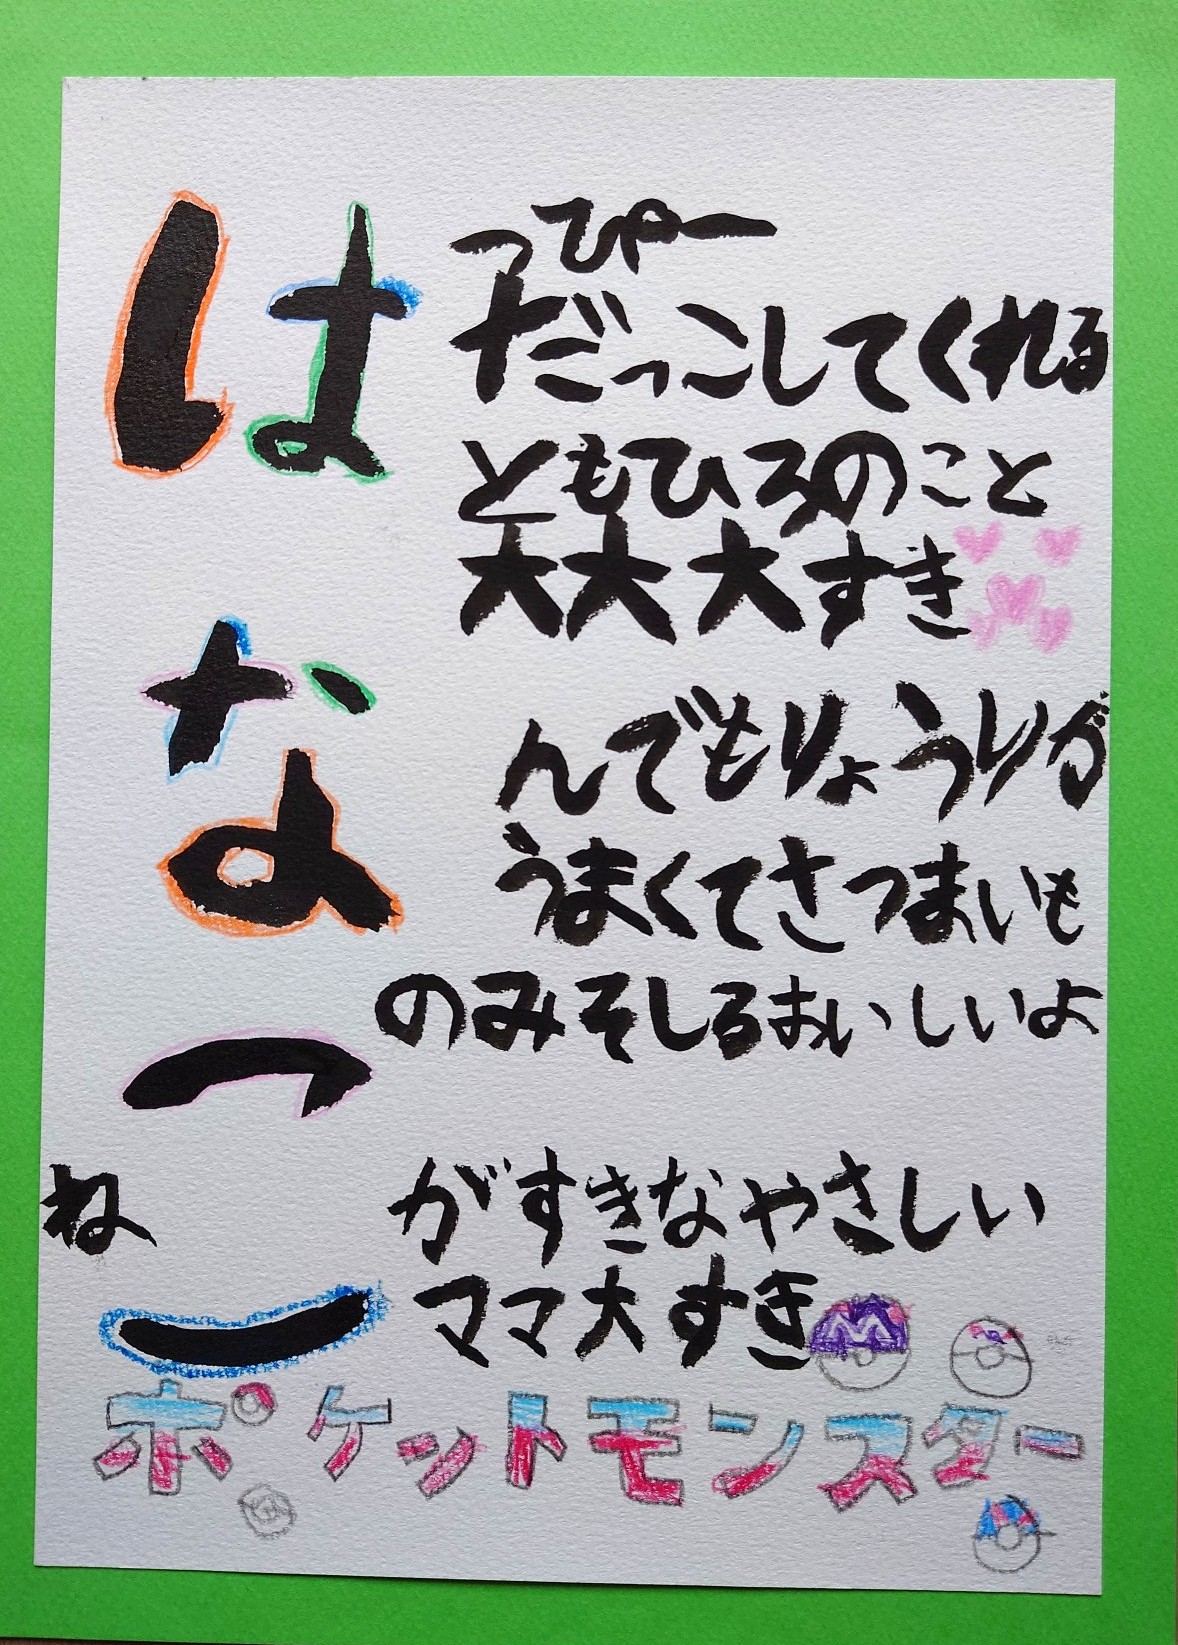 は っひゃー
だっこしてくれる
ともひろのこと
大大大すき
な んでもりょうりが
うまくてさつまいも
のみそしるおいしいよ
ねこ がすきなやさしい
ママ大すき
M
ポケットモンスター